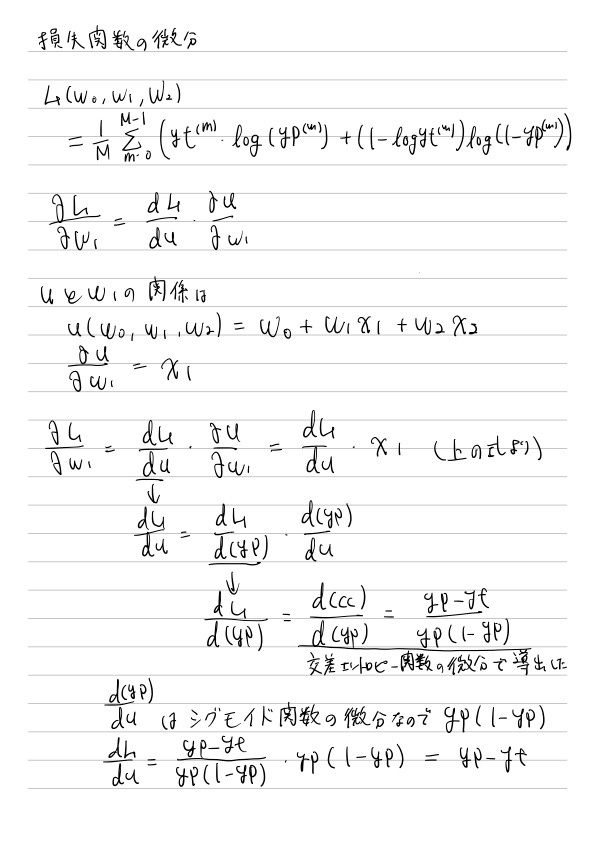 損失関数の微分
L(w₀, w₁, w₂)
= 1/M Σ_{m=0}^{M-1} (yt⁽ᵐ⁾・log(yp⁽ᵐ⁾) + (1-logyt⁽ᵐ⁾)log(1-yp⁽ᵐ⁾))
∂L/∂w₁ = dL/du ・ ∂u/∂w₁
uとw₁の関係は
u(w₀, w₁, w₂) = w₀ + w₁x₁ + w₂x₂
∂u/∂w₁ = x₁
∂L/∂w₁ = dL/du ・ ∂u/∂w₁ = dL/du ・ x₁ (上の式より)
↓
dL/du = dL/d(yp) ・ d(yp)/du
↓
dL/d(yp) = d(ce)/d(yp) = yp-yt/yp(1-yp)
交差エントロピー関数の微分で導出した
d(yp)/du はシグモイド関数の微分なので yp(1-yp)
dL/du = yp-yt/yp(1-yp) ・ yp(1-yp) = yp-yt